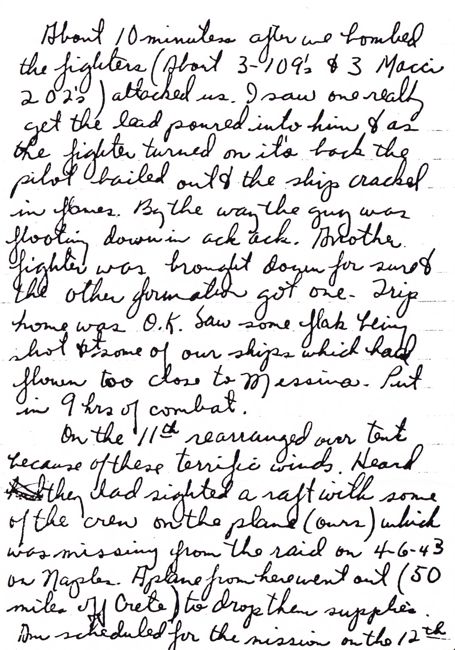 About 10 minutes after we bombed
the fighters (About 3-109's & 3 Macci
202's) attacked us. I saw one really
get the lead poured into him & as
the fighter turned on it's back the
pilot bailed out & the ship cracked
in flames. By the way the guy was
floating down in ack ack. Another
fighter was brought down for sure &
the other formation got one. Trip
home was O.K. Saw some flak being
shot at some of our ships which had
flown too close to Messina. Put
in 9 hrs of combat.
On the 11th rearranged our tent
because of these terrific winds. Heard
they had sighted a raft with some
of the crew on the plane (ours) which
was missing from the raid on 4-6-43
on Naples. A plane from here went out (50
miles off Crete) to drop them supplies.
Am scheduled for the mission on the 12th